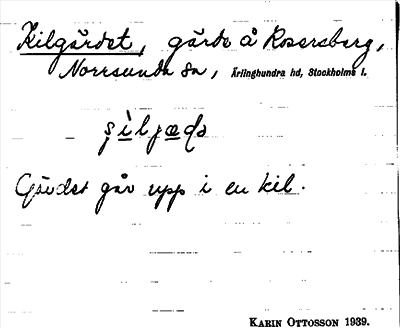 Kilgärdet, gärde å Rosersberg,
Norrsunda sn, Ärlinghundra hd, Stockholms l.
Gärdet går upp i en kil.
KARIN OTTOSSON 1939.